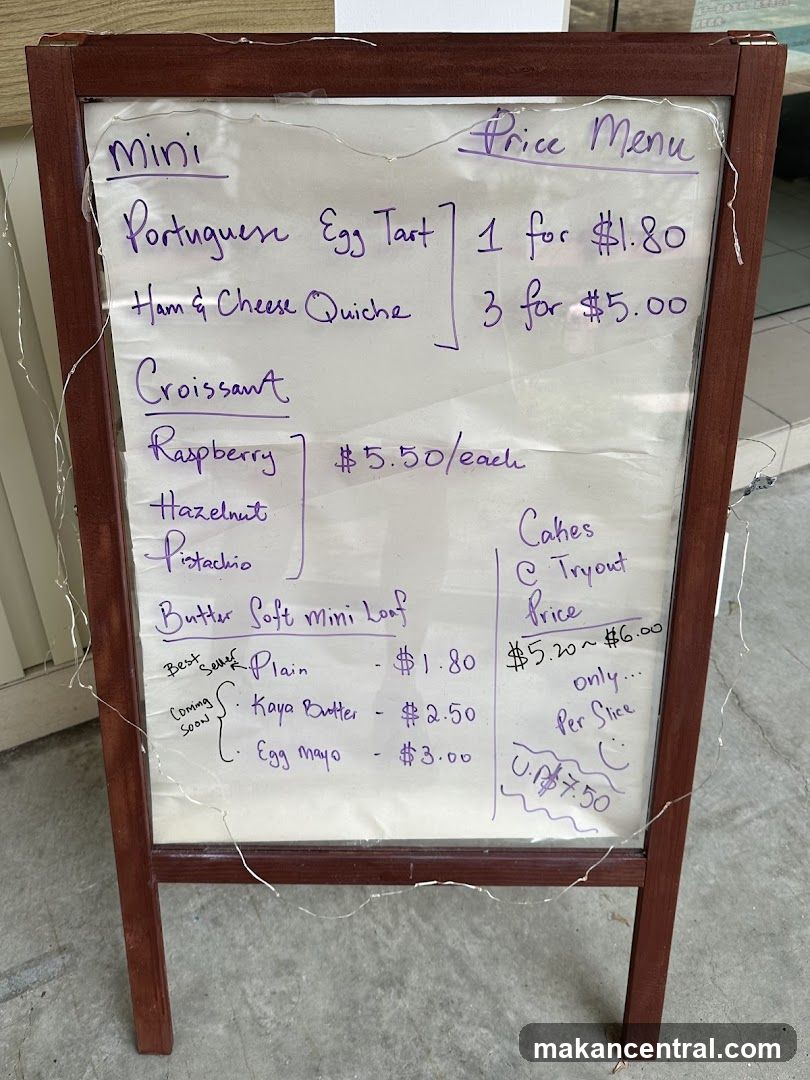 Mini
Price Menu
Portuguese Egg Tart
Ham & Cheese Quiche
1 for $1.80
3 for $5.00
Croissant
Raspberry
Hazelnut
Pistachio
$5.50/each
Butter Soft Mini Loaf
Best Seller
Plain - $1.80
Comming soon
Kaya Butter - $2.50
Egg Mayo - $3.00
Cakes
@ Tryout
Price
$5.20~$6.00
only...
Per Slice
U.P $7.50
makancentral.com